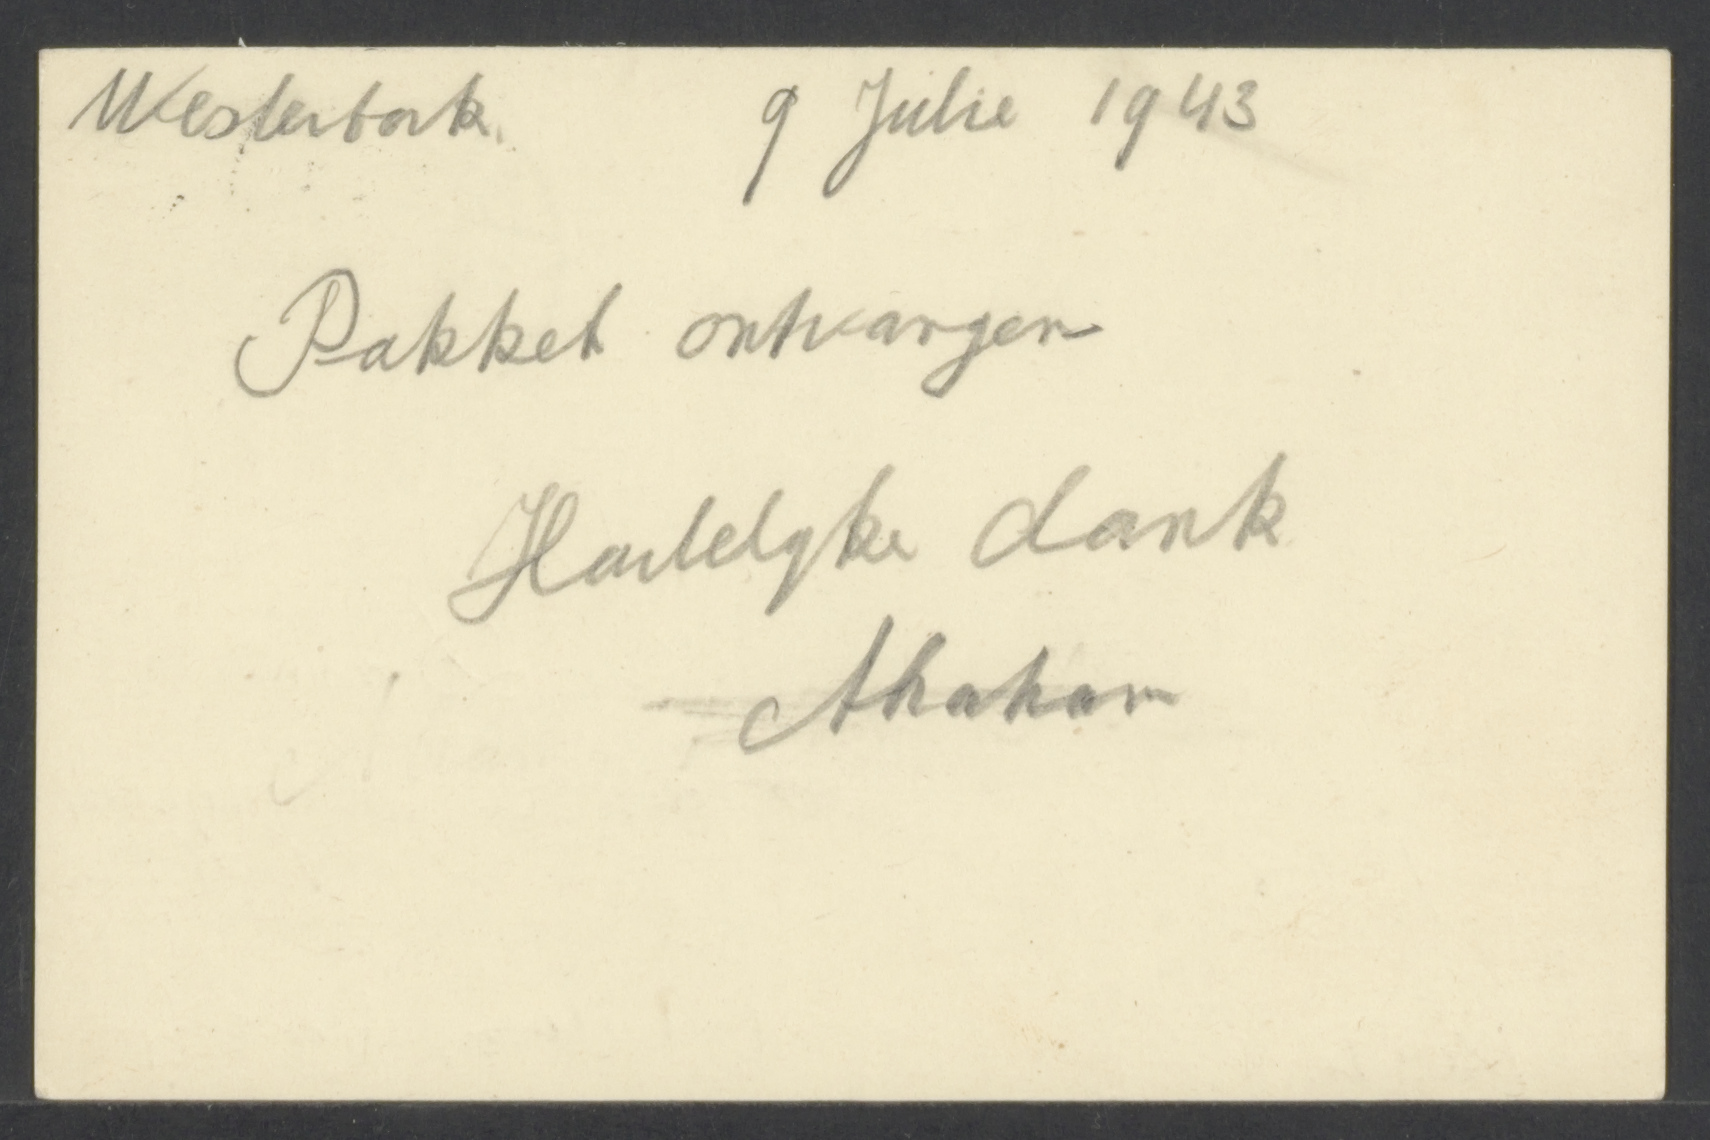 Westerbork. 9 Julie 1943
Pakket ontvangen
Hartelyke dank
Abraham